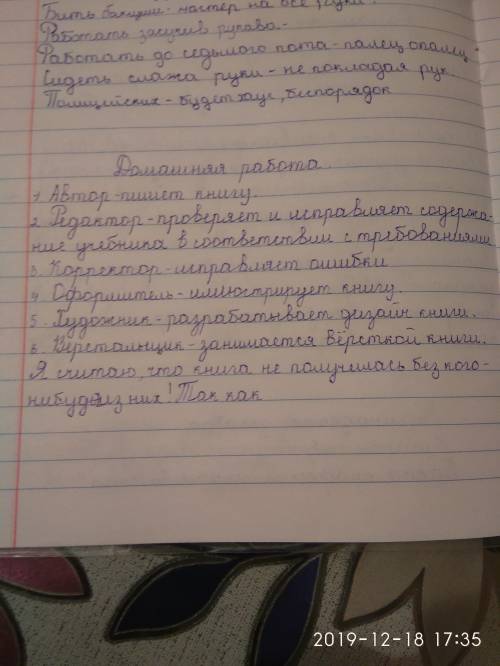 Бить баклуши - мастер на все руки.
Работать засучив рукава -
Работать до седьмого пота - палец о палец
Сидеть сложа руки - не покладая рук.
Полицейских - будет хаус, беспорядок
Домашняя работа
1. Автор - пишет книгу.
2. Редактор - проверяет и исправляет содержа-
ние учебника в соответствии с требованиями
3. Корректор - исправляет ошибки
4. Оформитель - иллюстрирует книгу.
5. Художник - разрабатывает дизайн книги.
6. Верстальщик - занимается вёрсткой книги.
Я считаю, что книга не получилась без кого-
нибудь из них! Так как
2019-12-18 17:35